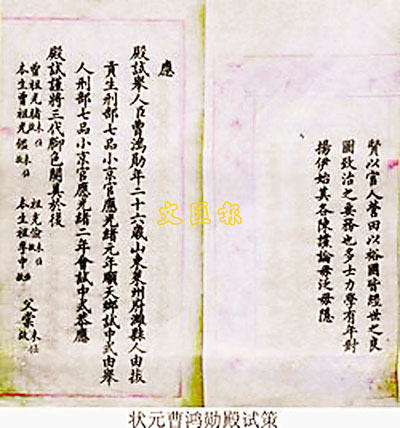 賢以官人營田以裕國皆經世之良
圖致治之要務也多士力學有年對
揚伊始其各陳讜論毋泛毋隱
應
殿試舉人臣曹鴻勛年二十六歲山東萊州府濰縣人由拔
貢生刑部七品小京官應光緒元年順天鄉試中式由舉
人刑部七品小京官應光緒二年會試中式恭應
殿試謹將三代腳色開具於後
曾祖光緒未仕 祖光倫未仕 父榮未仕
本生曾祖光鑑未仕 本生祖尊中
文匯報
状元曹鸿勋殿试策